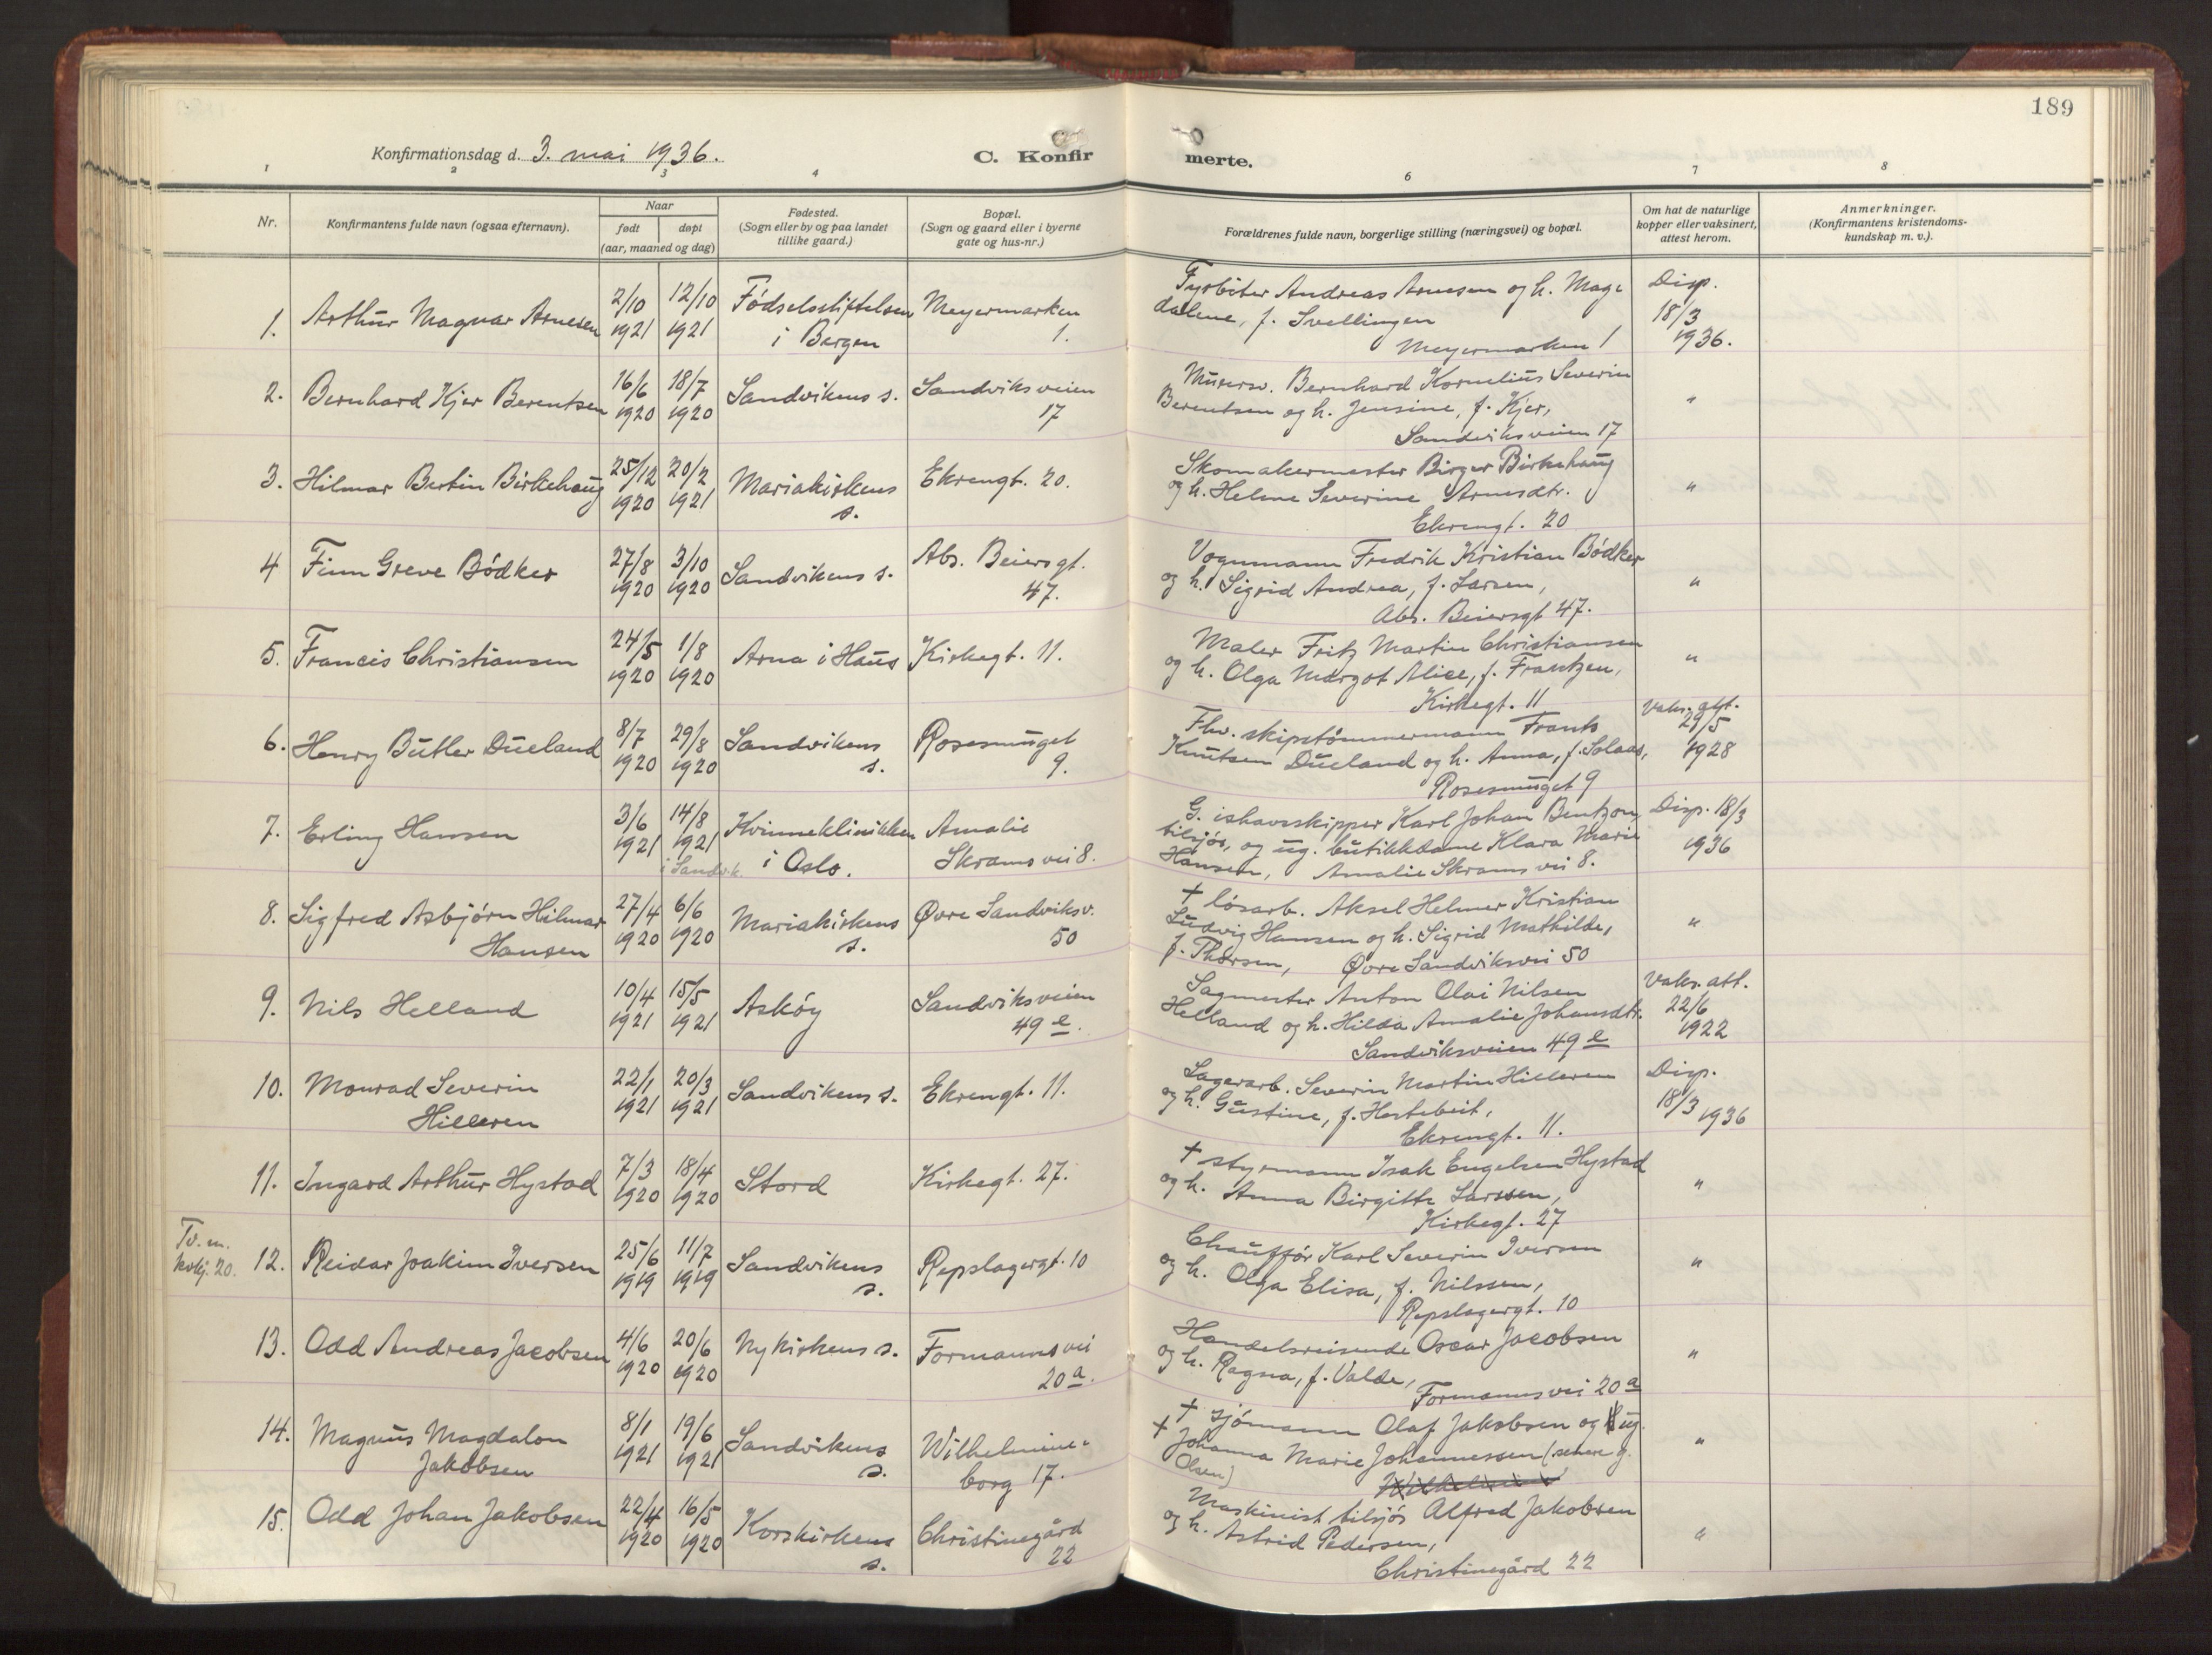 189
Konfirmationsdag d. 3. mai 1936.
C. Konfir
merte.
1 2 3 4 6 7 8
Nr.
Konfirmantens fulde navn (ogsaa efternavn).
Naar
født døpt
(aar, maaned og dag)
Fødested.
(Sogn eller by og paa landet
tillike gaard.)
Bopæl.
(Sogn og gaard eller i byerne
gate og hus-nr.)
Forældrenes fulde navn, borgerlige stilling (næringsvei) og bopæl.
Om hat de naturlige
kopper eller vaksinert,
attest herom.
Anmerkninger.
(Konfirmantens kristendoms-
kundskap m. v.).
1. Arthur Magnar Arnesen
2/10 1921
12/10 1921
Fødselsstiftelsen
i Bergen
Meyermarken
1.
Fyrbøter Andreas Arnesen og h. Mag-
dalene, f. Svellingen
Meyermarken 1
Disp.
18/3
1936.
2. Bernhard Kjer Berentsen
16/6 1920
18/7 1920
Sandvikens s.
Sandviksveien
17
Murersv. Bernhard Kornelius Severin
Berentsen og h. Jensine, f. Kjer,
Sandviksveien 17
"
3. Hilmar Bertin Birkehaug
25/12 1920
20/2 1921
Mariakirkens
s.
Ekrengt. 20.
Skomakermester Birger Birkehaug
og h. Helene Severine Arnesdtr.
Ekrengt. 20
"
4 Finn Greve Bödker
27/8 1920
3/10 1920
Sandvikens s.
Abs. Beiersgt.
47.
Vognmann Fredrik Kristian Bödker
og h. Sigrid Andrea, f. Larsen,
Abs. Beiersgt 47.
"
5. Francis Christiansen
24/5 1920
1/8 1920
Arna i Haus
Kirkegt. 11.
Maler Fritz Martin Christiansen
og h. Olga Margot Alice, f. Frantzen,
Kirkegt. 11
"
6. Henry Butler Dueland
8/7 1920
29/8 1920
Sandvikens
s.
Rosesmuget
9.
Fhv. skipstömmermann Frants
Knutsen Dueland og h. Anna, f. Solaas,
Rosesmuget 9
Vaks. att.
29/5
1928
7. Erling Hansen
3/6 1921
14/8 1921
i Sandvik.
Kvinneklinikken
i Oslo.
Amalie
Skrams vei 8.
G. ishavsskipper Karl Johan Bentzon,
tilsjös, og ug. butikkdame Klara Marie
Hansen, Amalie Skrams vei 8.
Disp. 18/3
1936
8. Sigfred Asbjörn Hilmar
Hansen
27/4 1920
6/6 1920
Mariakirkens
s.
Øvre Sandviksv.
50
† lösarb. Aksel Helmer Kristian
Ludvig Hansen og h. Sigrid Mathilde,
f. Thorsen, Øvre Sandviksvei 50
"
9. Nils Helland
10/4 1921
15/5 1921
Asköy
Sandviksveien
49 e.
Sagmester Anton Olai Nilsen
Helland og h. Hilda Amalie Johansdtr.
Sandviksveien 49 e
Vaks. att.
22/6
1922
10. Monrad Severin
Hilleren
22/1 1921
20/3 1921
Sandvikens s.
Ekrengt. 11.
Lagerarb. Severin Martin Hilleren
og h. Gustine, f. Hestebeit,
Ekrengt. 11.
Disp.
18/3 1936
11. Ingard Arthur Hystad
7/3 1920
18/4 1920
Stord
Kirkegt. 27.
† styrmann Isak Engelsen Hystad
og h. Anna Birgitte Larssen,
Kirkegt. 27
"
Tv. m.
12. Reidar Joakim Iversen
25/6 1919
11/7 1919
Sandvikens
s.
Repslagergt. 10
Chauffør Karl Severin Iversen
og h. Olga Elisa, f. Nilssen,
Repslagergt. 10
"
13. Odd Andreas Jacobsen
4/6 1920
20/6 1920
Nykirkens s.
Formanns vei
20 a.
Handelsreisende Oscar Jacobsen
og h. Ragna, f. Valde,
Formanns vei 20 a
"
14. Magnus Magdalon
Jakobsen
8/1 1921
19/6 1921
Sandvikens
s.
Wilhelmine-
borg 17.
† sjömann Olaf Jakobsen og ug.
† Johanna Marie Johannessen (senere g.
Olsen)
"
15. Odd Johan Jakobsen
22/4 1920
16/5 1920
Korskirkens
s.
Christinegård
22
Maskinist tilsjös Alfred Jakobsen
og h. Astrid Pedersen,
Christinegård 22
"